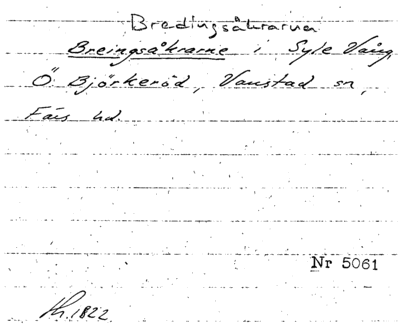 Bredingsåkrarna
Breingsåkrarne i Syle Vång,
Ö. Björkeröd, Vanstad sn,
Färs hd.
Nr 5061
1822